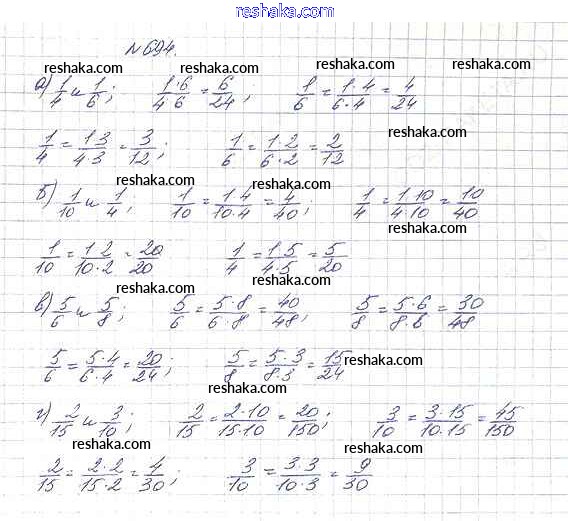 reshaka.com
№694.
reshaka.com reshaka.com reshaka.com
а) 1/4 и 1/6; 1·6/4·6 = 6/24; 1/6 = 1·4/6·4 = 4/24
reshaka.com
1/4 = 1·3/4·3 = 3/12; 1/6 = 1·2/6·2 = 2/12
reshaka.com reshaka.com
б) 1/10 и 1/4; 1/10 = 1·4/10·4 = 4/40; 1/4 = 1·10/4·10 = 10/40
reshaka.com
1/10 = 1·2/10·2 = 20/20 1/4 = 1·5/4·5 = 5/20
reshaka.com reshaka.com
в) 5/6 и 5/8; 5/6 = 5·8/6·8 = 40/48; 5/8 = 5·6/8·6 = 30/48
reshaka.com
5/6 = 5·4/6·4 = 20/24; 5/8 = 5·3/8·3 = 15/24
reshaka.com
reshaka.com
г) 2/15 и 3/10; 2/15 = 2·10/15·10 = 20/150; 3/10 = 3·15/10·15 = 45/150
reshaka.com reshaka.com reshaka.com
2/15 = 2·2/15·2 = 4/30; 3/10 = 3·3/10·3 = 9/30
reshaka.com